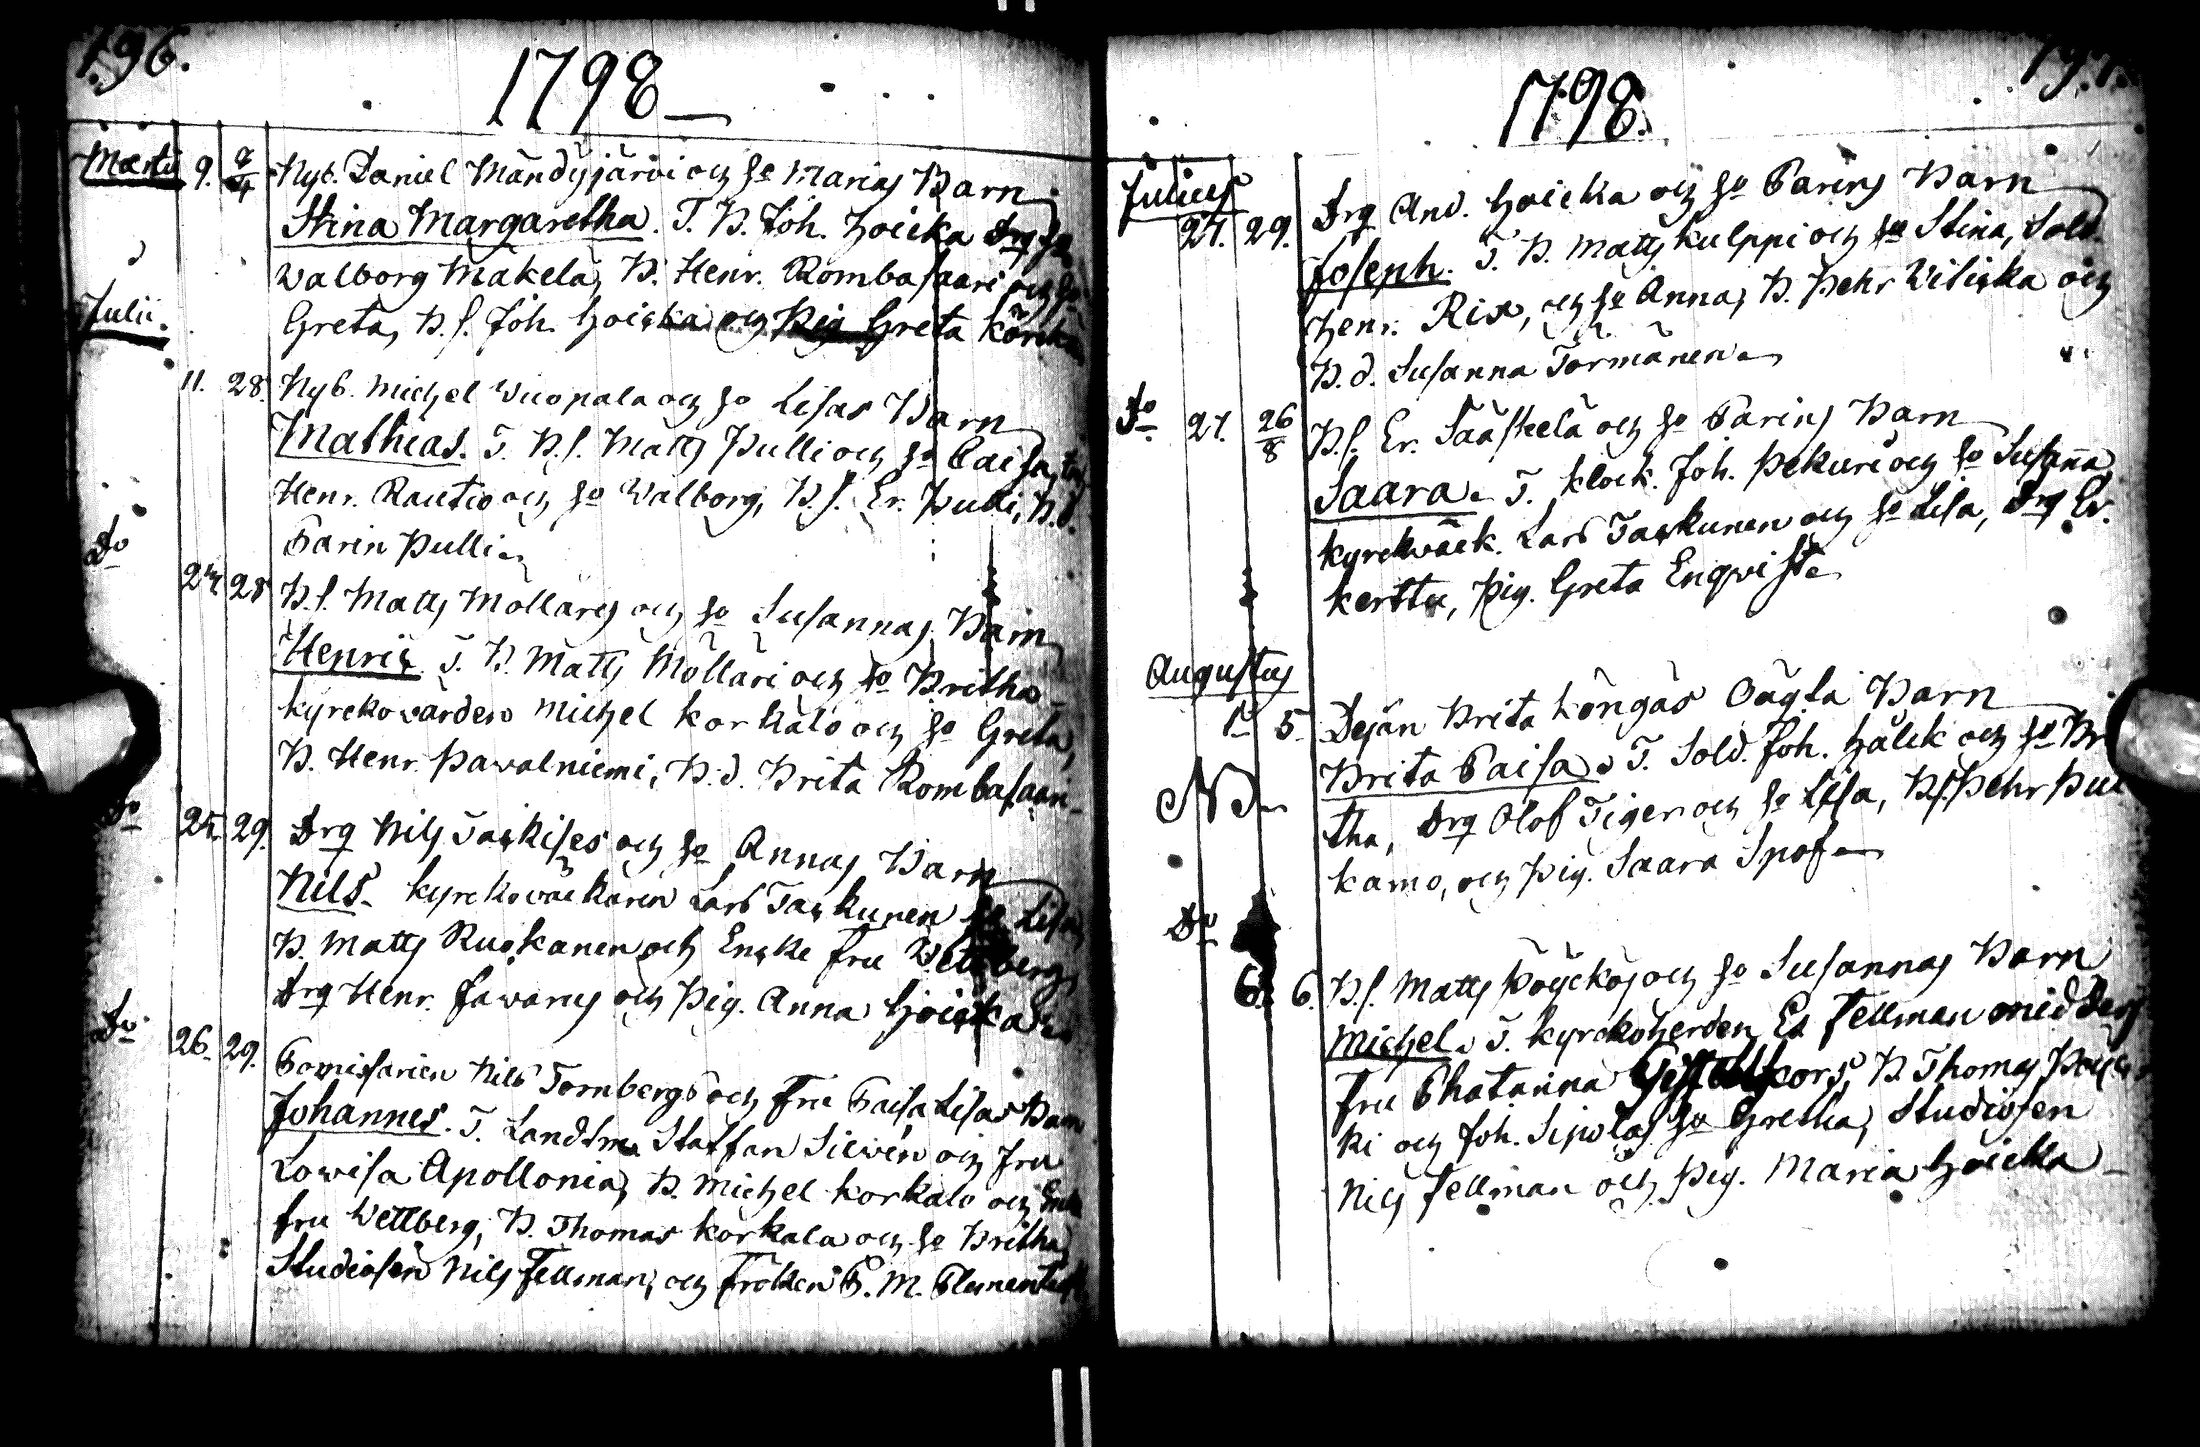 196.
1798
Martii 9. 9/4 Nyb. Daniel Mändyjärvi och ho Marias Barn
Stina Margaretha. T. B. Joh. Hoicka Drg
Walborg Mäkelä, B. Henr. Rombasaari och ho
Julii. Greta, B.s. Joh. Hoicka och Pig Greta
11. 28. Nyb. Michel Wuopala och ho Lisas Barn
Mathias. T. B.s. Matts Pulli och ho Caisa,
Henr. Rautio och ho Walborg, B.s. Er. Pulli, B.d.
Carin Pulli
Do 24 28 B.s. Matts Mölläris och ho Susannas Barn
Henric. T. B. Matts Mölläri och ho Britha
kyrckovärden Michel Korkalo och ho Greta,
B. Henr. Pawalniemi, B.d. Brita Rombasaari
Do 25. 29. Drg Nils Taskises och ho Annas Barn
Nils. kyrckoväckaren Lars Taskunen ho Lisa,
B. Matts Ruokanen och Encke fru Wettberg,
Drg Henr. Fawarus och Pig. Anna Hoicka
Do 26. 29. Comissarien Nils Tornbergs och Fru Caisa Lisas Barn
Johannes. T. Landtm. Staffan Silwén och Fru
Lowisa Apollonia, B. Michel Korkalo och
fru Wettberg, B. Thomas Korkala och ho Britha,
Studiosen Nils Fellman, och Fröken C. M.
197.
1798.
Julius
27. 29. Drg And. Hoicka och ho Carins Barn
Joseph. T. B. Matts Kulppi och ho Stina, Sold.
Henr. Rix, och ho Anna, B. Pehr Wilicka och
B.d. Susanna Törmänen
Do 27. 26/8 B.s. Er. Sääskelä och ho Carins Barn
Saara. T. klock. Joh. Pekuri och ho Susanna
kyrckväck. Lars Taskunen och ho Lisa, Drg Er.
Kerttu, Pig. Greta Enqvist
Augustus
1 5 Dejan Brita Köngäs Oägta Barn
Brita Caisa. T. Sold. Joh. Hälck och ho Bri
NB tha, Drg Olof Tiger och ho Lisa, B.s. Pehr Pul
kamo, och Pig. Saara Spof
Do 6. 6. B.s. Matts Pöyckös och ho Susannas Barn
Michel. T. kyrckoherden Es. Fellman med dess
fru Chatarina B. Thomas
ki och Joh. Sipolas ho Gretha, Studiosen
Nils Fellman och Pig. Maria Hoicka